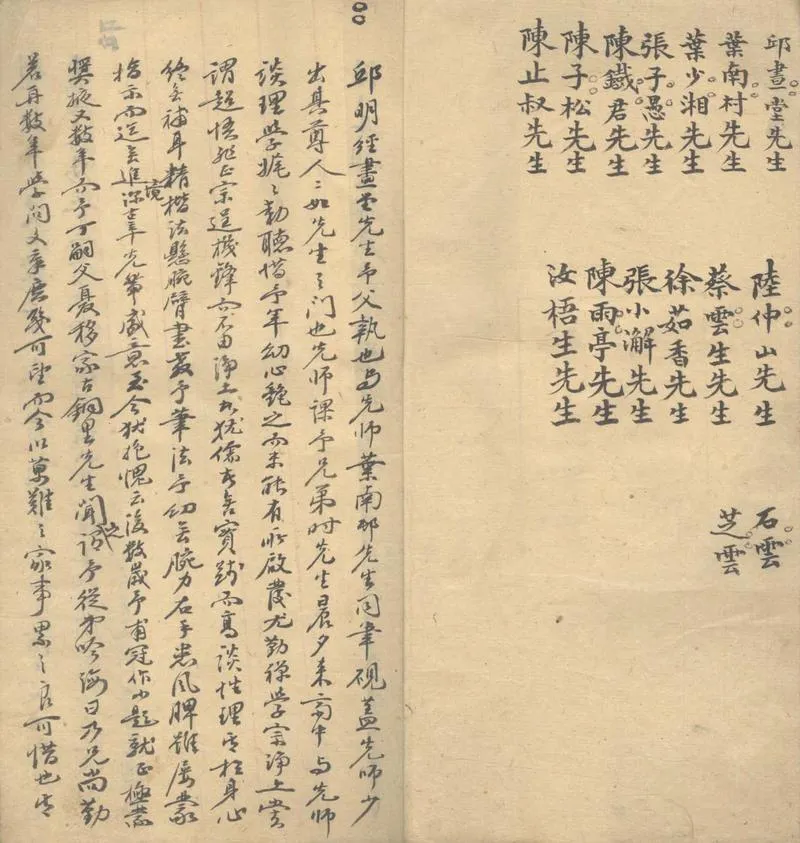 邱畫堂先生
葉南村先生
葉少湘先生
張子愚先生
陳鐵君先生
陳子松先生
陳止叔先生
陸仲山先生
蔡雲生先生
徐茹香先生
張小澥先生
陳雨亭先生
汝梧生先生
石雲
芝雲
邱明經畫堂先生予父執也与先師葉南邨先生同筆硯蓋先師少
出其尊人二如先生之門也先師課予兄弟时先生晨夕来齋中与先師
談理學娓〻動聽惜予年幼心艷之而未能有所啟發尤勤禅學宗淨土嘗
謂超悟雖正宗逞機鋒而不由淨土犹儒者無實踐而高談性理者於身心
終無補耳精楷法懸腕臂書教予筆法予幼無腕力右手患风脾雖屢蒙
指示而迄無進境深辜先生盛意至今犹抱愧云後数歲予甫冠作小題就正極蒙
奬掖又数年而予丁嗣父憂移家古銅里先生聞之誡予從弟吟海曰乃兄尚勤
若再数年學问文章庶幾可望而今以萬難之家事累之良可惜也